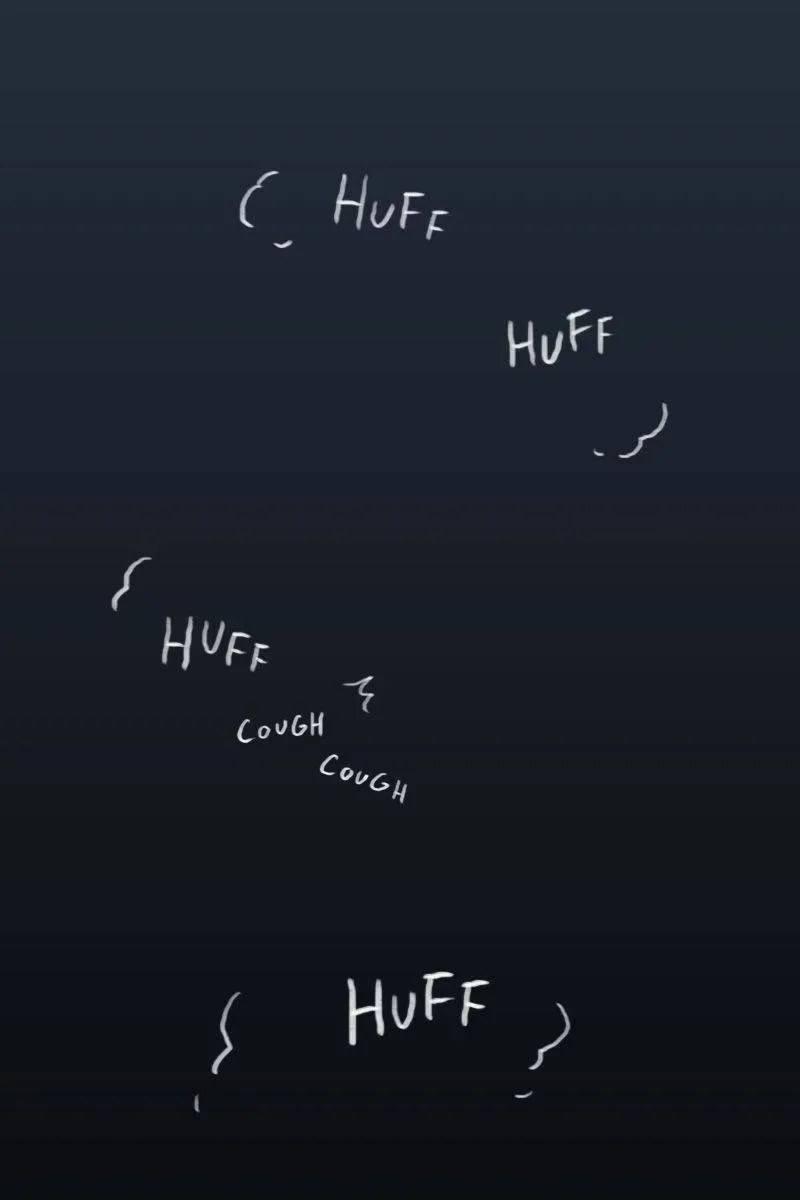 HUFF
HUFF
HUFF
COUGH
COUGH
HUFF